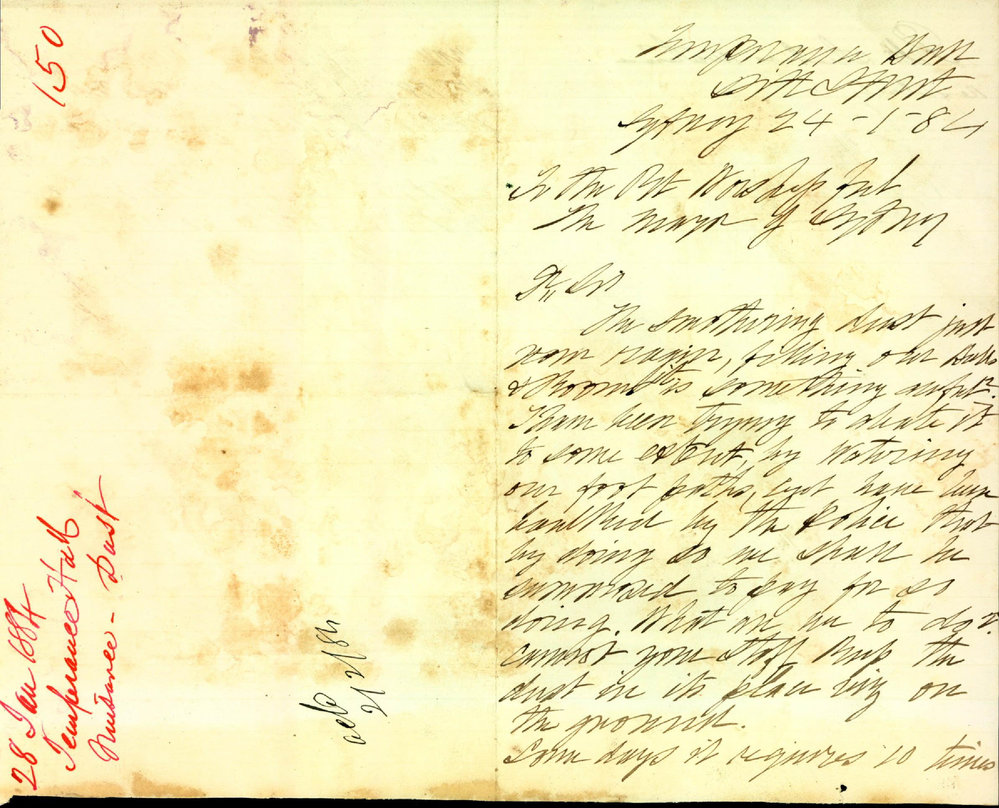 150
28 Jan 1884
Temperance Hall
Nuisance - Dust
2/2/84
Temperance Hall
Pitt Street
Sydney 24-1-84
To the Rt Worshipful
The Mayor of Sydney
Dr Sir
The smothering dust just
now raging, filling our Halls
& Rooms is something
I have been trying to abate it
to some extent, by watering
our foot paths, but have been
by the Police that
by doing so we shall be
summonsed to pay for so
doing. What are we to do?
cannot your Staff keep the
dust in its place on
the ground.
Some days it requires 10 times